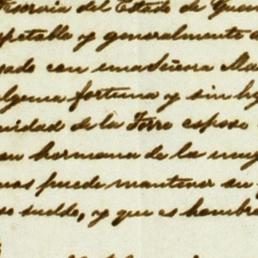 Tesoreria del Estado de Quere
petable y generalmente
sado con una Señora Ma
alguna fortuna y sin hi
nidad de la Torre esposo
an hermana de la muj
nos puede mantener su
so sueldo, y que es hombre